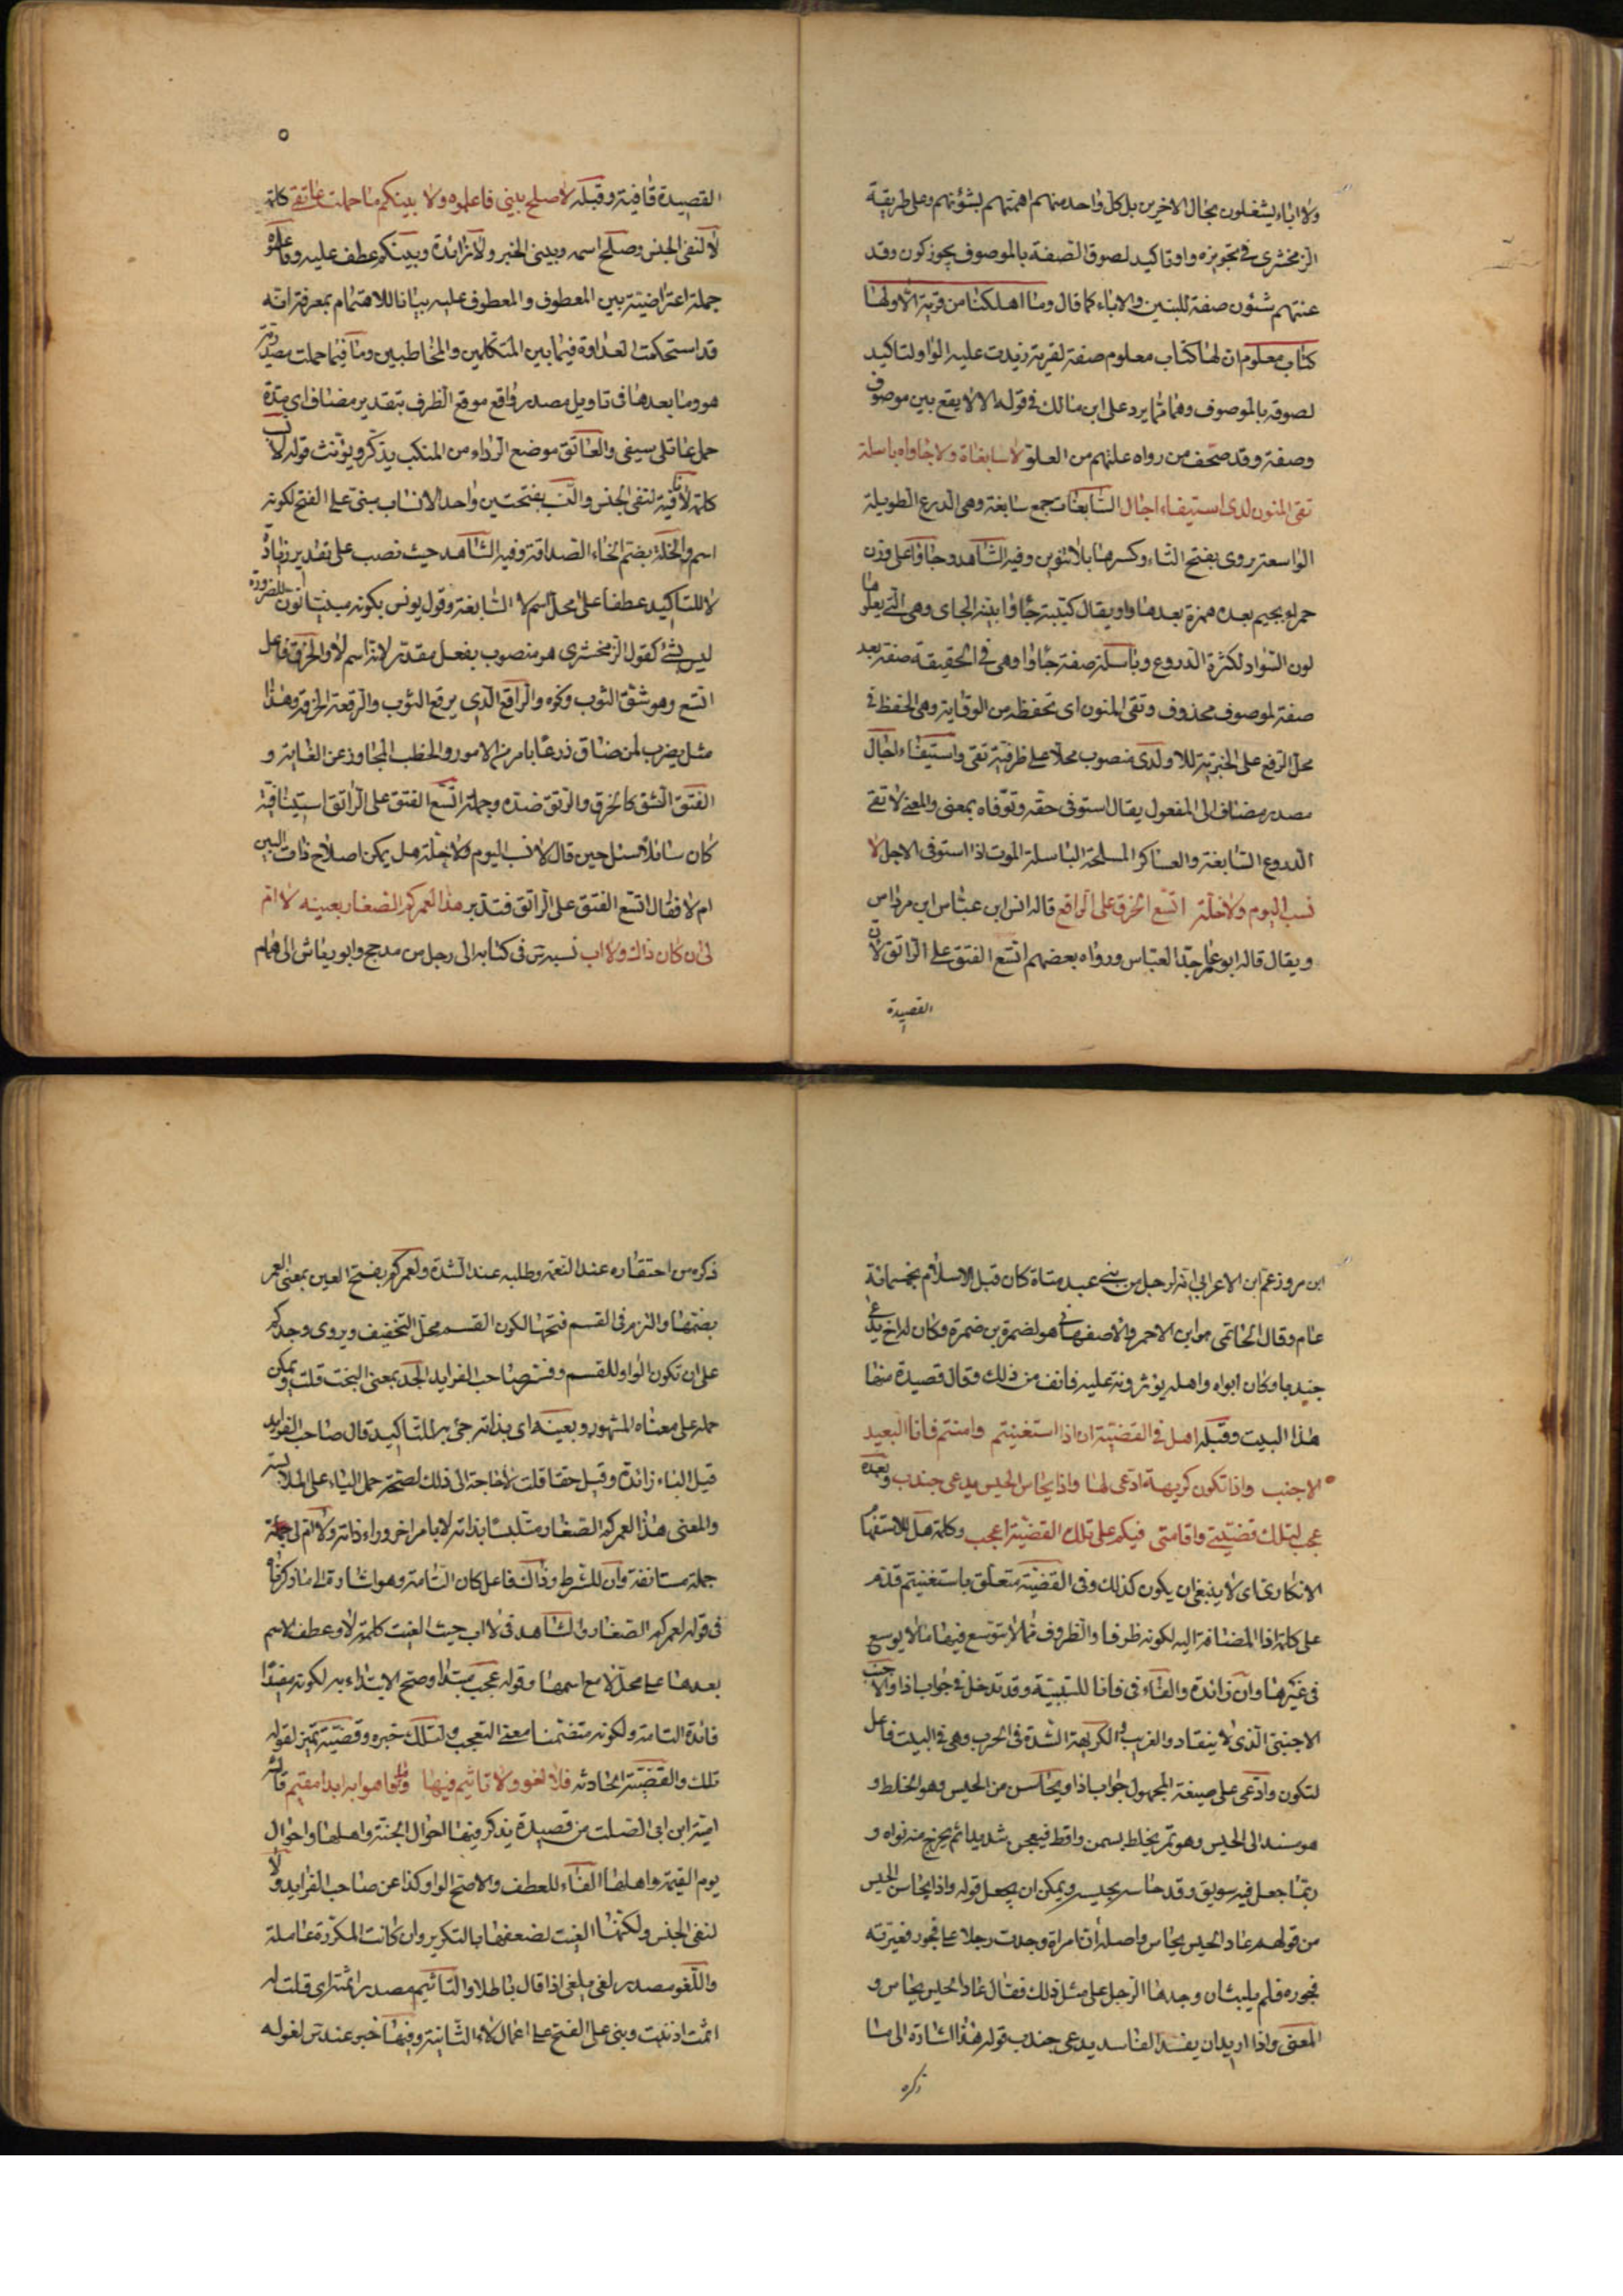 ولا اباء يشغلون بحال الاخرين بل كل واحد منهم اهمتهم بشؤنهم وعلى طريقة
الزمخشرى فى تجويزه واو تاكيد لصوق الصفة بالموصوف يجوز كون وقد
عنتهم شئون صفة للبنين والاباء كما قال وما اهلكنا من قرية الا ولها
كتاب معلوم ان لها كتاب معلوم صفة لقرية زيدت عليه الواو لتاكيد
لصوقه بالموصوف وهما مما يرد على ابن مالك فى قوله الا لا يقع بين موصوف
وصفة وقد صحف من رواه علتهم من العلو لا سابغات ولا جاواء باسلة
تقى المنون لدى استيفاء اجال السابغات جمع سابغة وهى الدرع الطويلة
الواسعة يروى بفتح التاء وكسرها بلا تنوين وفيه الشاهد وجاواء على وزن
حمراء بجيم بعده همزة بعدها واو يقال كتيبة جاواء بينة الجاى وهى التى يعلوها
لون السواد لكثرة الدروع وباسلة صفة جاواء وهى فى الحقيقة صفة بعد
صفة لموصوف محذوف وتقى المنون اى تحفظه من الوقاية وهى الحفظ فى
محل الرفع على الخبرية للا ولدى منصوب محلا على ظرفية تقى واستيفاء اجال
مصدر مضاف الى المفعول يقال استوفى حقه وتوفاه بمعنى والمعنى لا تقى
الدروع السابغة والعساكر المسلحة الباسلة الموت اذا استوفى الاجل لا
نسب اليوم ولا خلة اتسع الخرق على الراقع قاله انس ابن عباس ابن مرداس
ويقال قاله ابو عامر جد العباس ورواه بعضهم اتسع الفتق على الراتق لان
القصيدة
القصيدة قافية وقبله لا صلح بينى فاعلموه ولا بينكم ما حملت عاتقى كلمة
لا لنفى الجنس وصلح اسمه وبينى الخبر ولا زائدة وبينكم عطف عليه وفاعلموه
جملة اعتراضية بين المعطوف والمعطوف عليه بيانا للاهتمام بمعرفة انه
قد استحكمت العداوة فيما بين المتكلمين والمخاطبين وما فيما حملت مصدرية
هو وما بعدها فى تاويل مصدر واقع موقع الظرف بتقدير مضاف اى مدة
حمل عاتقى سيفى والعاتق موضع الرداء من المنكب يذكر ويؤنث قوله لا نسب
كلمة لا نافية لنفى الجنس والنسب بفتحتين واحد الانساب مبنى على الفتح لكونه
اسم والخلة بضم الخاء الصداقة وفيه الشاهد حيث نصب على تقدير زيادة
لا للتاكيد عطفا على محل اسم لا السابغة وقول يونس بكونه مبنيا نون للضرورة
ليس بشئ كقول الزمخشرى هو منصوب بفعل مقدر لانه اسم لا والخرق فاعل
اتسع وهو شق الثوب ونحوه والراقع الذى يرقع الثوب والرقعة الخرقة وهذا
مثل يضرب لمن ضاق ذرعا بامر من الامور والخطب المجاوز عن الغاية و
الفتق الشق كالخرق والرتق ضده وجملة اتسع الفتق على الراتق استينافية
كان سائلا سئل حين قال لا نسب اليوم ولا خلة هل يمكن اصلاح ذات البين
ام لا فقال اتسع الفتق على الراتق فتدبر هذا لعمركم الصغار بعينه لا ام
لى ان كان ذاك ولا اب نسبه س فى كتابه الى رجل من مدحج وابو رياش الى همام
ابن مر وزعم ابن الاعرابى انه لرجل من بنى عبد مناة كان قبل الاسلام بخمسمائة
عام وقال الحاتمى هو ابن الاحمر والاصفهانى هو لضمرة بن ضمرة وكان له اخ يدعى
جندبا وكان ابواه واهله يؤثرونه عليه فانف من ذلك وقال قصيدة منها
هذا البيت وقبله اهل فى القضية ان اذا استغنيتم وامنتم فانا البعيد
الاجنب واذا تكون كريهة ادعى لها واذا يحاس الحيس يدعى جندب وبعده
عجب لتلك قضيتى واقامتى فيكم على تلك القضية اعجب وكلمة هل للاستفهام
الانكارى اى لا ينبغى ان يكون كذلك وفى القضية متعلق باستغنيتم قدم
على كلمة اذا المضافة اليه لكونه ظرفا والظروف مما لا يتوسع فيها ما لا يوسع
فى غيرها وان زائدة والفاء فى فانا للسببية وقد تدخل فى جواب اذا والاجنب
الاجنبى الذى لا ينقاد والغريب والكريهة الشدة فى الحرب وهى فى البيت فاعل
لتكون وادعى على صيغة المجهول جواب اذا ويحاس من الحيس وهو الخلط و
هو مسند الى الحيس وهو تمر يخلط بسمن واقط فيعجن شديدا ثم يخرج منه نواه و
ربما جعل فيه سويق وقد حاسه يحيسه ويمكن ان يجعل قوله واذا يحاس الحيس
من قولهم عاد الحيس يحاس واصله ان امراة وجدت رجلا على فجور فعيرته
فجوره فلم يلبث ان وجدها الرجل على مثل ذلك فقال عاد الحيس يحاس و
المعنى واذا اريد ان يفسد الفاسد يدعى جندب قوله هذا اشارة الى ما
ذكره
ذكره من احتقاره عند النعمة وطلبه عند الشدة ولعمركم بفتح العين بمعنى العمر
بضمها والتزم فى القسم فتحها لكون القسم محل التخفيف ويروى وجدكم
على ان تكون الواو للقسم وفسر صاحب الفرايد الجد بمعنى البخت قلت ويمكن
حمله على معناه المشهور وبعينه اى بذاته جئ به للتاكيد قال صاحب الفرايد
قيل الباء زائدة وقيل حقا قلت لا حاجة الى ذلك لصحة حمل الباء على الملابسة
والمعنى هذا لعمركم الصغار متلبسا بذاته لا بامر اخر وراء ذاته ولا ام لى جملة
جملة مستانفة وان للشرط وذاك فاعل كان التامة وهو اشارة الى ما ذكرناه
فى قوله لعمركم الصغار والشاهد فى لا اب حيث الغيت كلمة لا وعطف الاسم
بعدها على محل لا مع اسمها وقوله عجب مبتدا وصح الابتداء به لكونه مفيدا
فائدة التامة ولكونه متضمنا معنى التعجب ولتلك خبره وقضية تميز لقوله
تلك والقضية الحادثه فلا لغو ولا تاثيم فيها وما فاهوا به ابدا مقيم قاله
امية ابن ابى الصلت من قصيدة يذكر فيها احوال الجنة واهلها واحوال
يوم القيمة واهلها الفاء للعطف والاصح الواو كذا عن صاحب الفرايد ولا
لنفى الجنس ولكنها الغيت لضعفها بالتكرير وان كانت المكررة عاملة
واللغو مصدر لغى يلغى اذا قال باطلا والتاثيم مصدر اثمته اى قلت له
اثمت اذنبت وبنى على الفتح على اعمال لاء الثانية وفيها خبر عند س لغوله